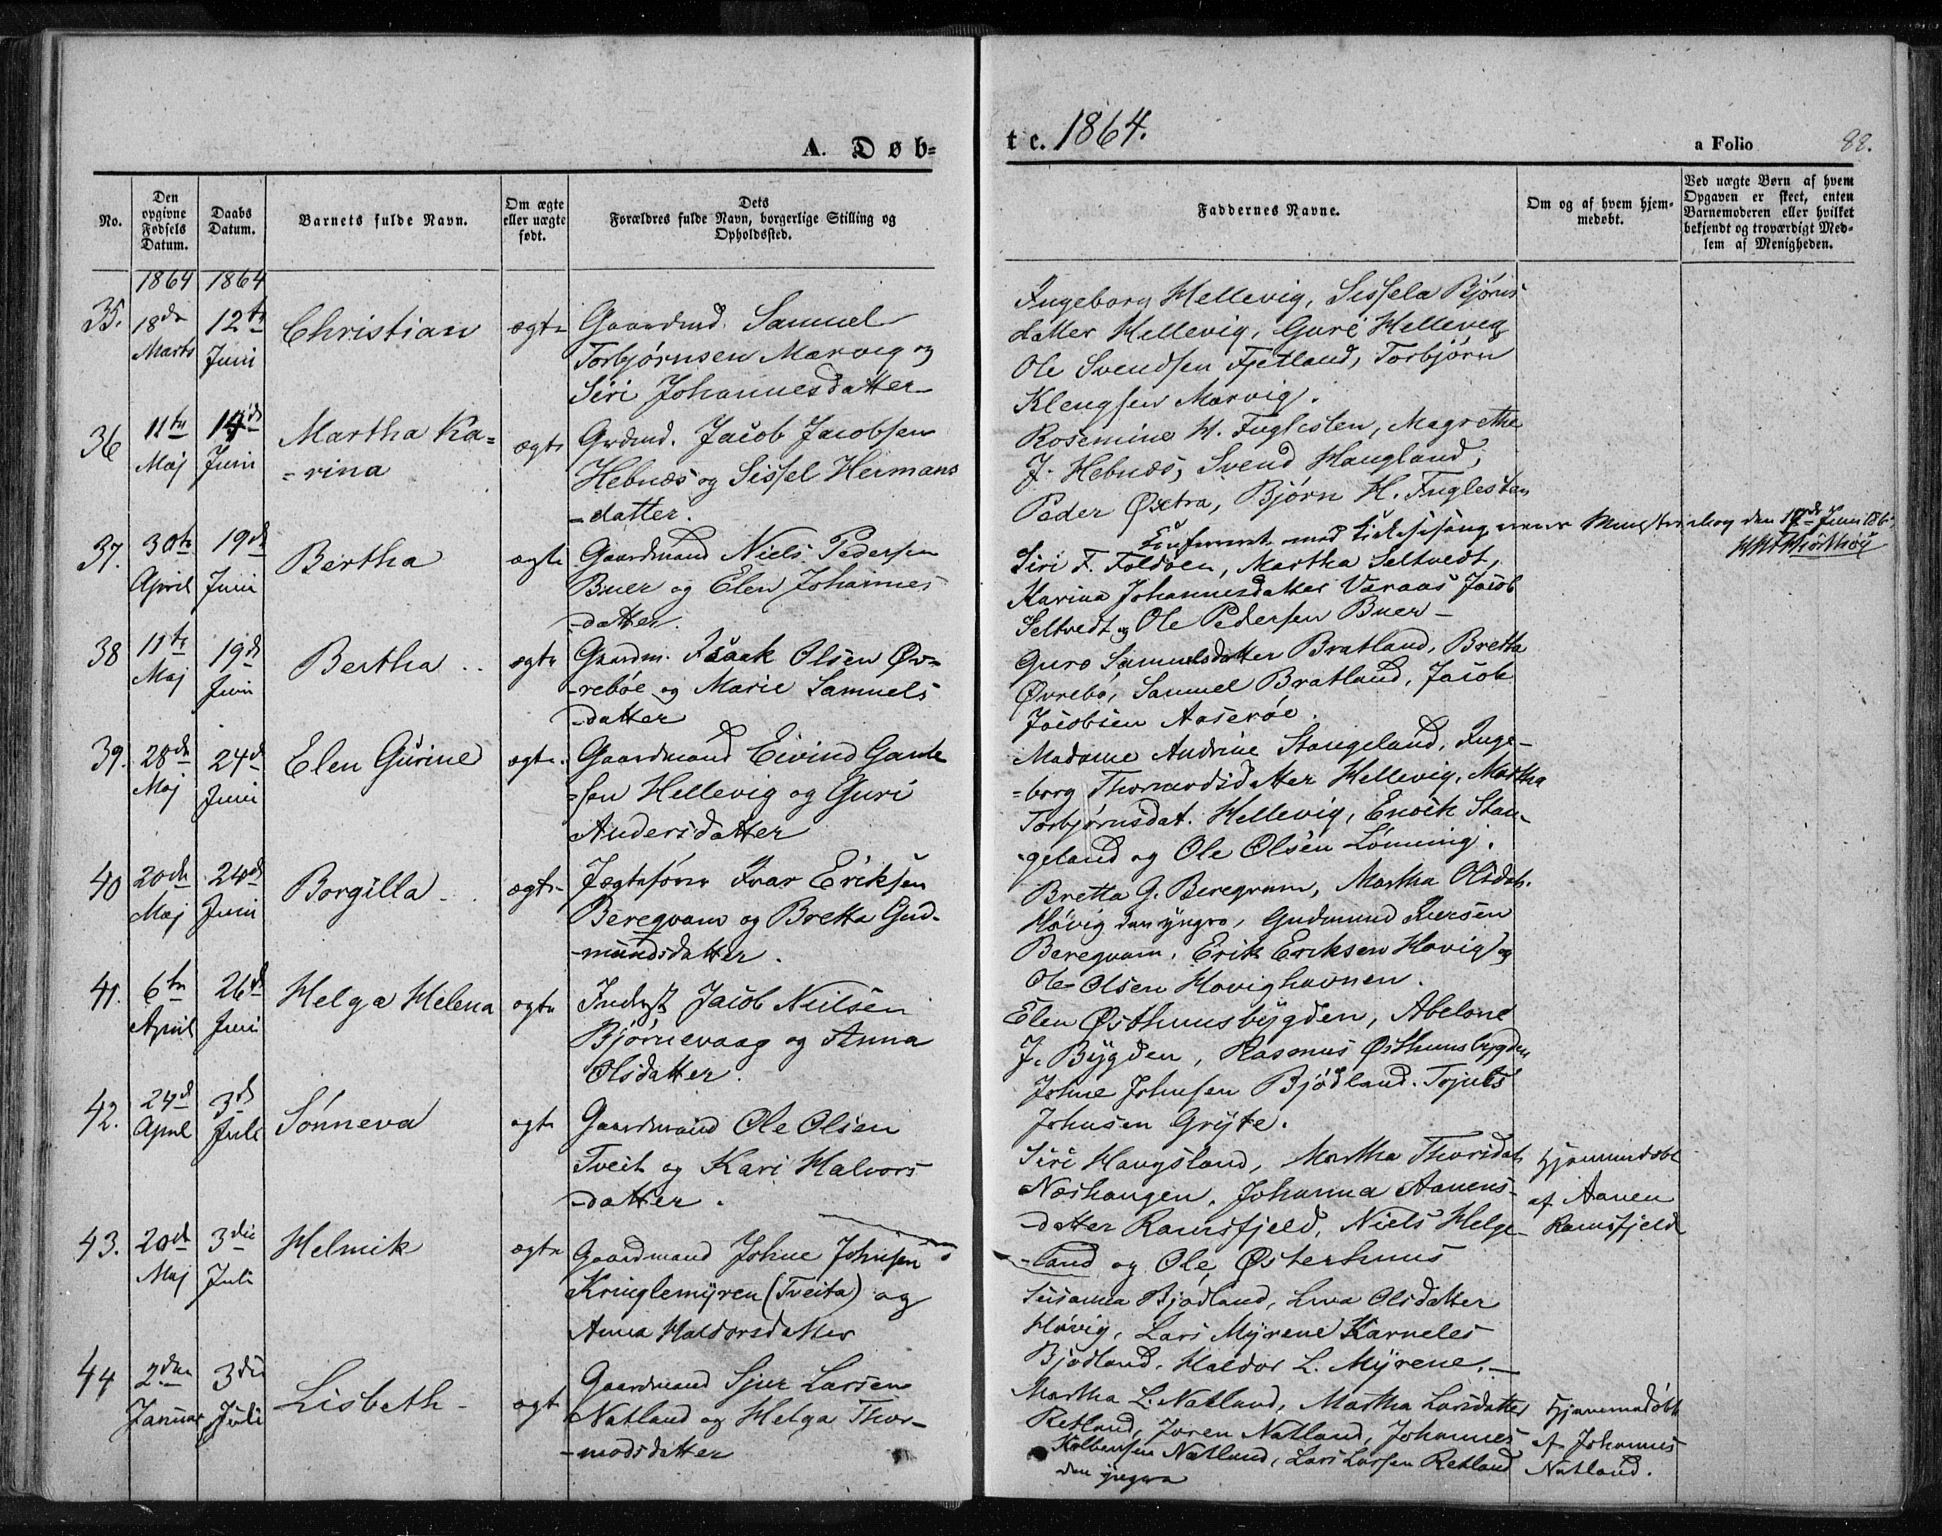 A. Døb=
te. 1864.
a Folio 88.
No.
Den opgivne Fødsels Datum.
Daabs Datum.
Barnets fulde Navn.
Om ægte eller uægte født.
Dets Forældres fulde Navn, borgerlige Stilling og Opholdssted.
Faddernes Navne.
Om og af hvem hjem-medøbt.
Ved uægte Børn af hvem Opgaven er skeet, enten Barnemoderen eller hvilket bekjendt og troværdigt Med-lem af Menigheden.
1864 1864
35. 18de Marts 12te Juni Christian ægte
Gaardmd. Samuel
Torbjørnsen Marvig og
Siri Johannesdatter
Ingeborg Hellevig, Sissela Bjørns
datter Hellevig, Guri Hellevig
Ole Svendsen Fjetland, Torbjørn
Klengsen Marvig.
36 11te Maj 14de Juni Martha Ka=
=rina ægte
Grdmd. Jacob Jacobsen
Hebnæs og Sissel Hermans
-datter.
Rosemine H. Fuglesten, Magrethe
J. Hebnæs, Svend Haugland,
Peder Østra, Bjørn H. Fuglesten
den 17de Juni
37. 30te April 19de Juni Bertha ægte
Gaardmand Niels Pedersen
Buer og Elen Johannes
-datter.
Siri F. Foldøen, Martha Seltvedt,
Karina Johannesdatter Varaas Jacob
Seltvedt og Ole Pedersen Buer -
38 11te Maj 19de Juni Bertha ægte
Gaardm. Isaak Olsen Øv-
-rebøe og Marie Samuels
-datter
Guro Samuelsdatter Bratland, Bretha
Øvrebø, Samuel Bratland, Jacob
Jacobsen Aaserøe.
39. 28de Maj 24de Juni Elen Gurine ægte
Gaardmand Eivind Gaute
=sen Hellevig og Guri
Andersdatter
Madame Andrine Stangeland, Inge-
=borg Thormodsdatter Hellevig, Martha
Torbjørnsdat. Hellevig, Enoch Stan-
-geland og Ole Olsen Lønning.
40 20de Maj 24de Juni Borgilla ægte
Jægtefører Ivar Eriksen
Beregvam og Bretta Gud-
-mundsdatter.
Bretta G. Beregvam, Martha Olsdat.
Høvig den yngre, Gudmund Iversen
Beregvam, Erik Eriksen Hovig og
Ole Olsen Hovighavnen.
41. 6te April 26de Juni Helga Helena ægte
Inderst Jacob Nielsen
Bjørnevaag og Anna
Olsdatter.
Elen Østhuusbygden, Abelone
J. Bygden, Rasmus Østhuusbygden
Johne Johnsen Bjødland. Tojuls
Johnsen Gryte.
42. 24de April 3de Juli Sønneva ægte
Gaardmand Ole Olsen
Tveit og Kari Halvors
-datter.
Siri Haugsland, Martha Thorsdat.
Næshaugen, Johanna Aanens-
-datter Ramsfjeld, Niels Helge-
-land og Ole Østerhuus
Hjemmedøbt
af Aanen
Ramsfjeld
43. 20de Maj 3die Juli Helmik ægte
Gaardmand Johne Johnsen
Kringlemyren (Tveita) og
Anna Haldorsdatter
Susanna Bjødland, Liva Olsdatter
Høvig, Lars Myrene Karneles
Bjødland, Haldor L. Myrene. -
44 2den Januar 3die Juli Lisbeth ægte
Gaardmand Sjur Larsen
Natland og Helga Thor-
-modsdatter
Martha L. Natland, Martha Larsdatter
Retland, Joren Natland, Johannes
Kolbensen Natland, Lars Larsen Retland
den yngre
Hjemmedøbt
af Johannes
Natland.